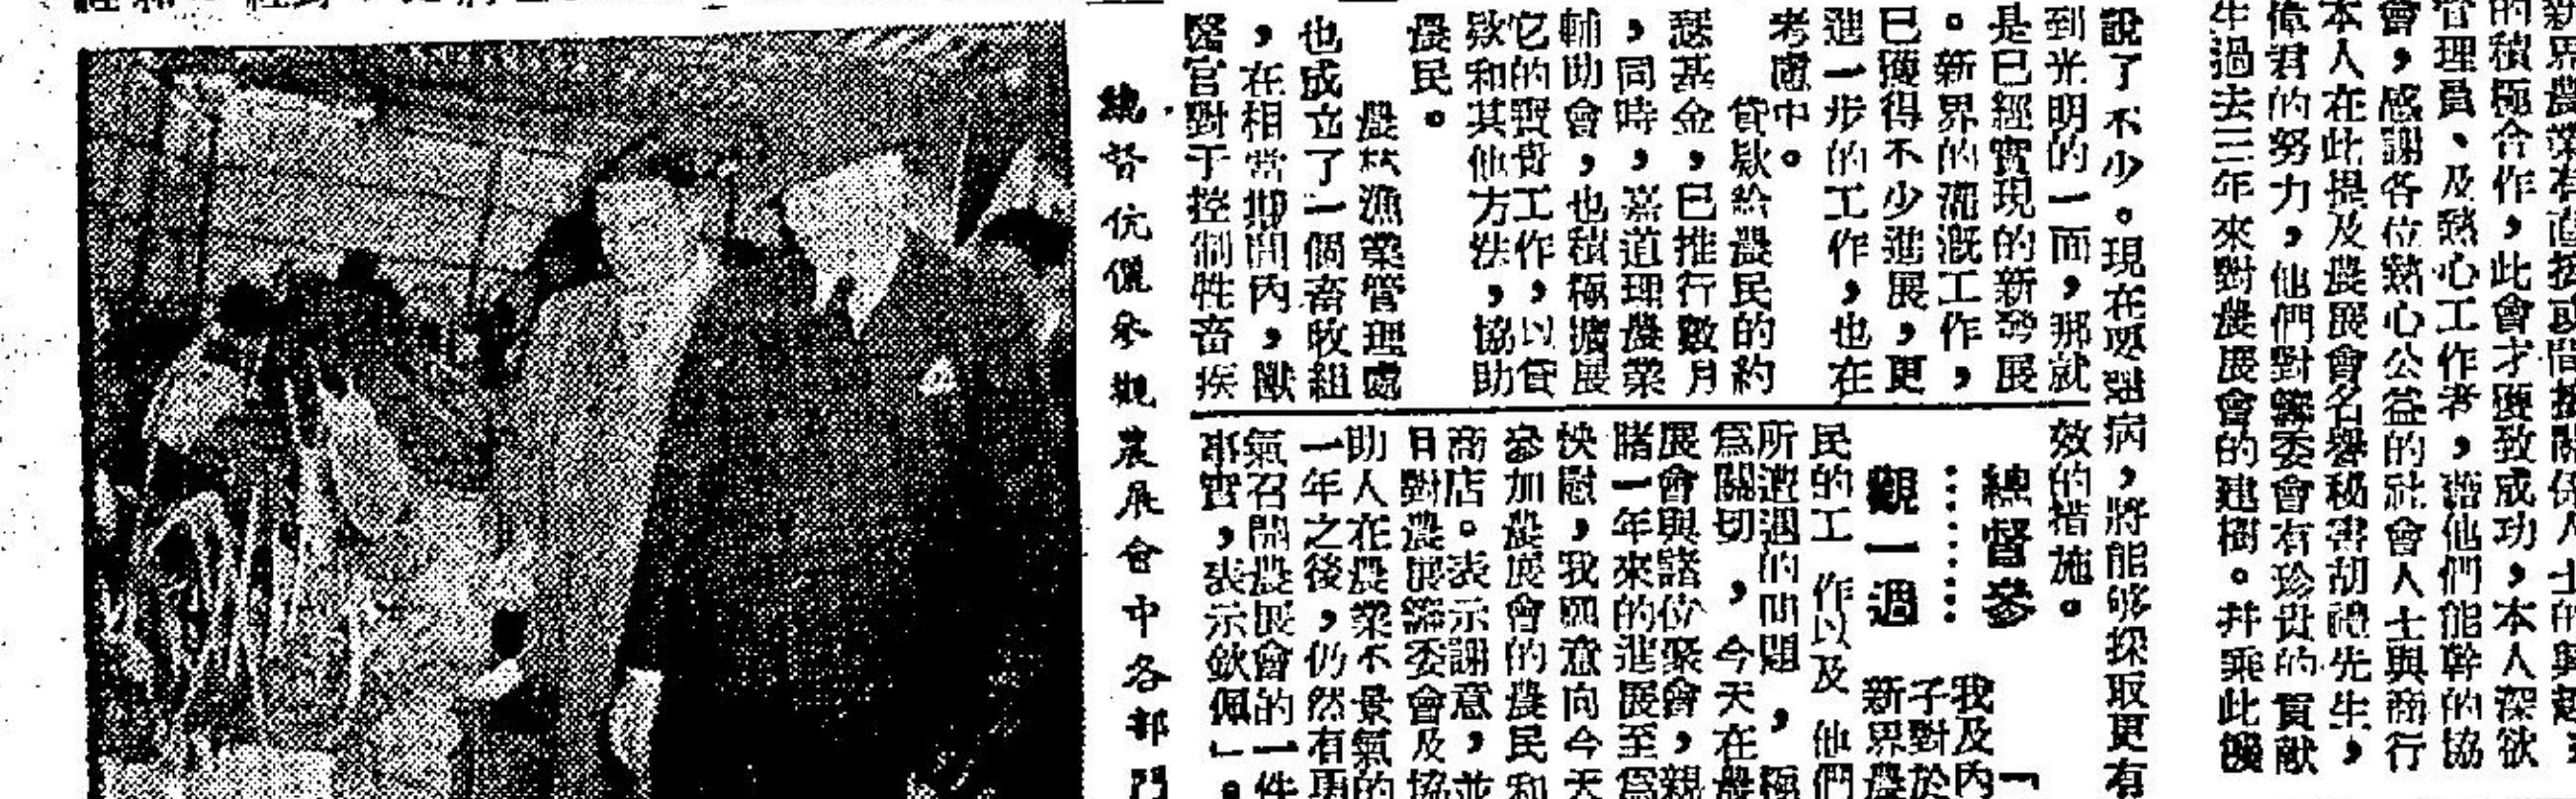 新界農業有直接或間接關係人士的興趣
的積極合作，此會才要致成功，本人深欲
管理員、及熱心工作者，藉他們能幹的協
會，感謝各位熱心公益的社會人士與商行
本人在此提及農展會名譽秘書胡禮先生，
偉君的努力，他們對籌委會有珍貴的貢献
生過去三年來對農展會的建樹。并乘此機
說了不少。現在
病，將能够採取更有
到光明的一面，那就
是已經實現的新發展
。新界的灌溉工作，
已獲得不少進展，更
進一步的工作，也在
考慮中。
貸欵給農民的約
瑟基金，已推行數月
，同時，嘉道理農業
輔助會，也積極擴展
它的寶貴工作，以貸
欵和其他方法，協助
農民。
農林漁業管理處
也成立了一個畜牧組
，在相當期間內，獸
醫官對于控制牲畜疾
效的措施。
總督參
觀一週
「
我及內
子對於
新界農
民的工作以及他們
所遭遇的問題，極
爲關切，今天在農
展會與諸位聚會，親
睹一年來的進展至爲
快慰，我願意向今天
參加農展會的農民和
商店。表示謝意，並
日對農展籌委會及協
助人在農業不景氣的
一年之後，仍然有勇
氣召開農展會的一件
事實，表示欽佩」。
總督伉儷參觀農展會中各部門